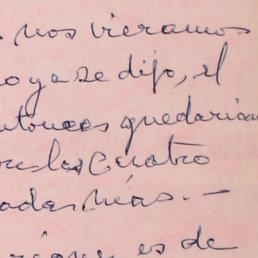 nos vieramos
ya se dijo, el
entonces quedarian
los cuatro
más. —
es de